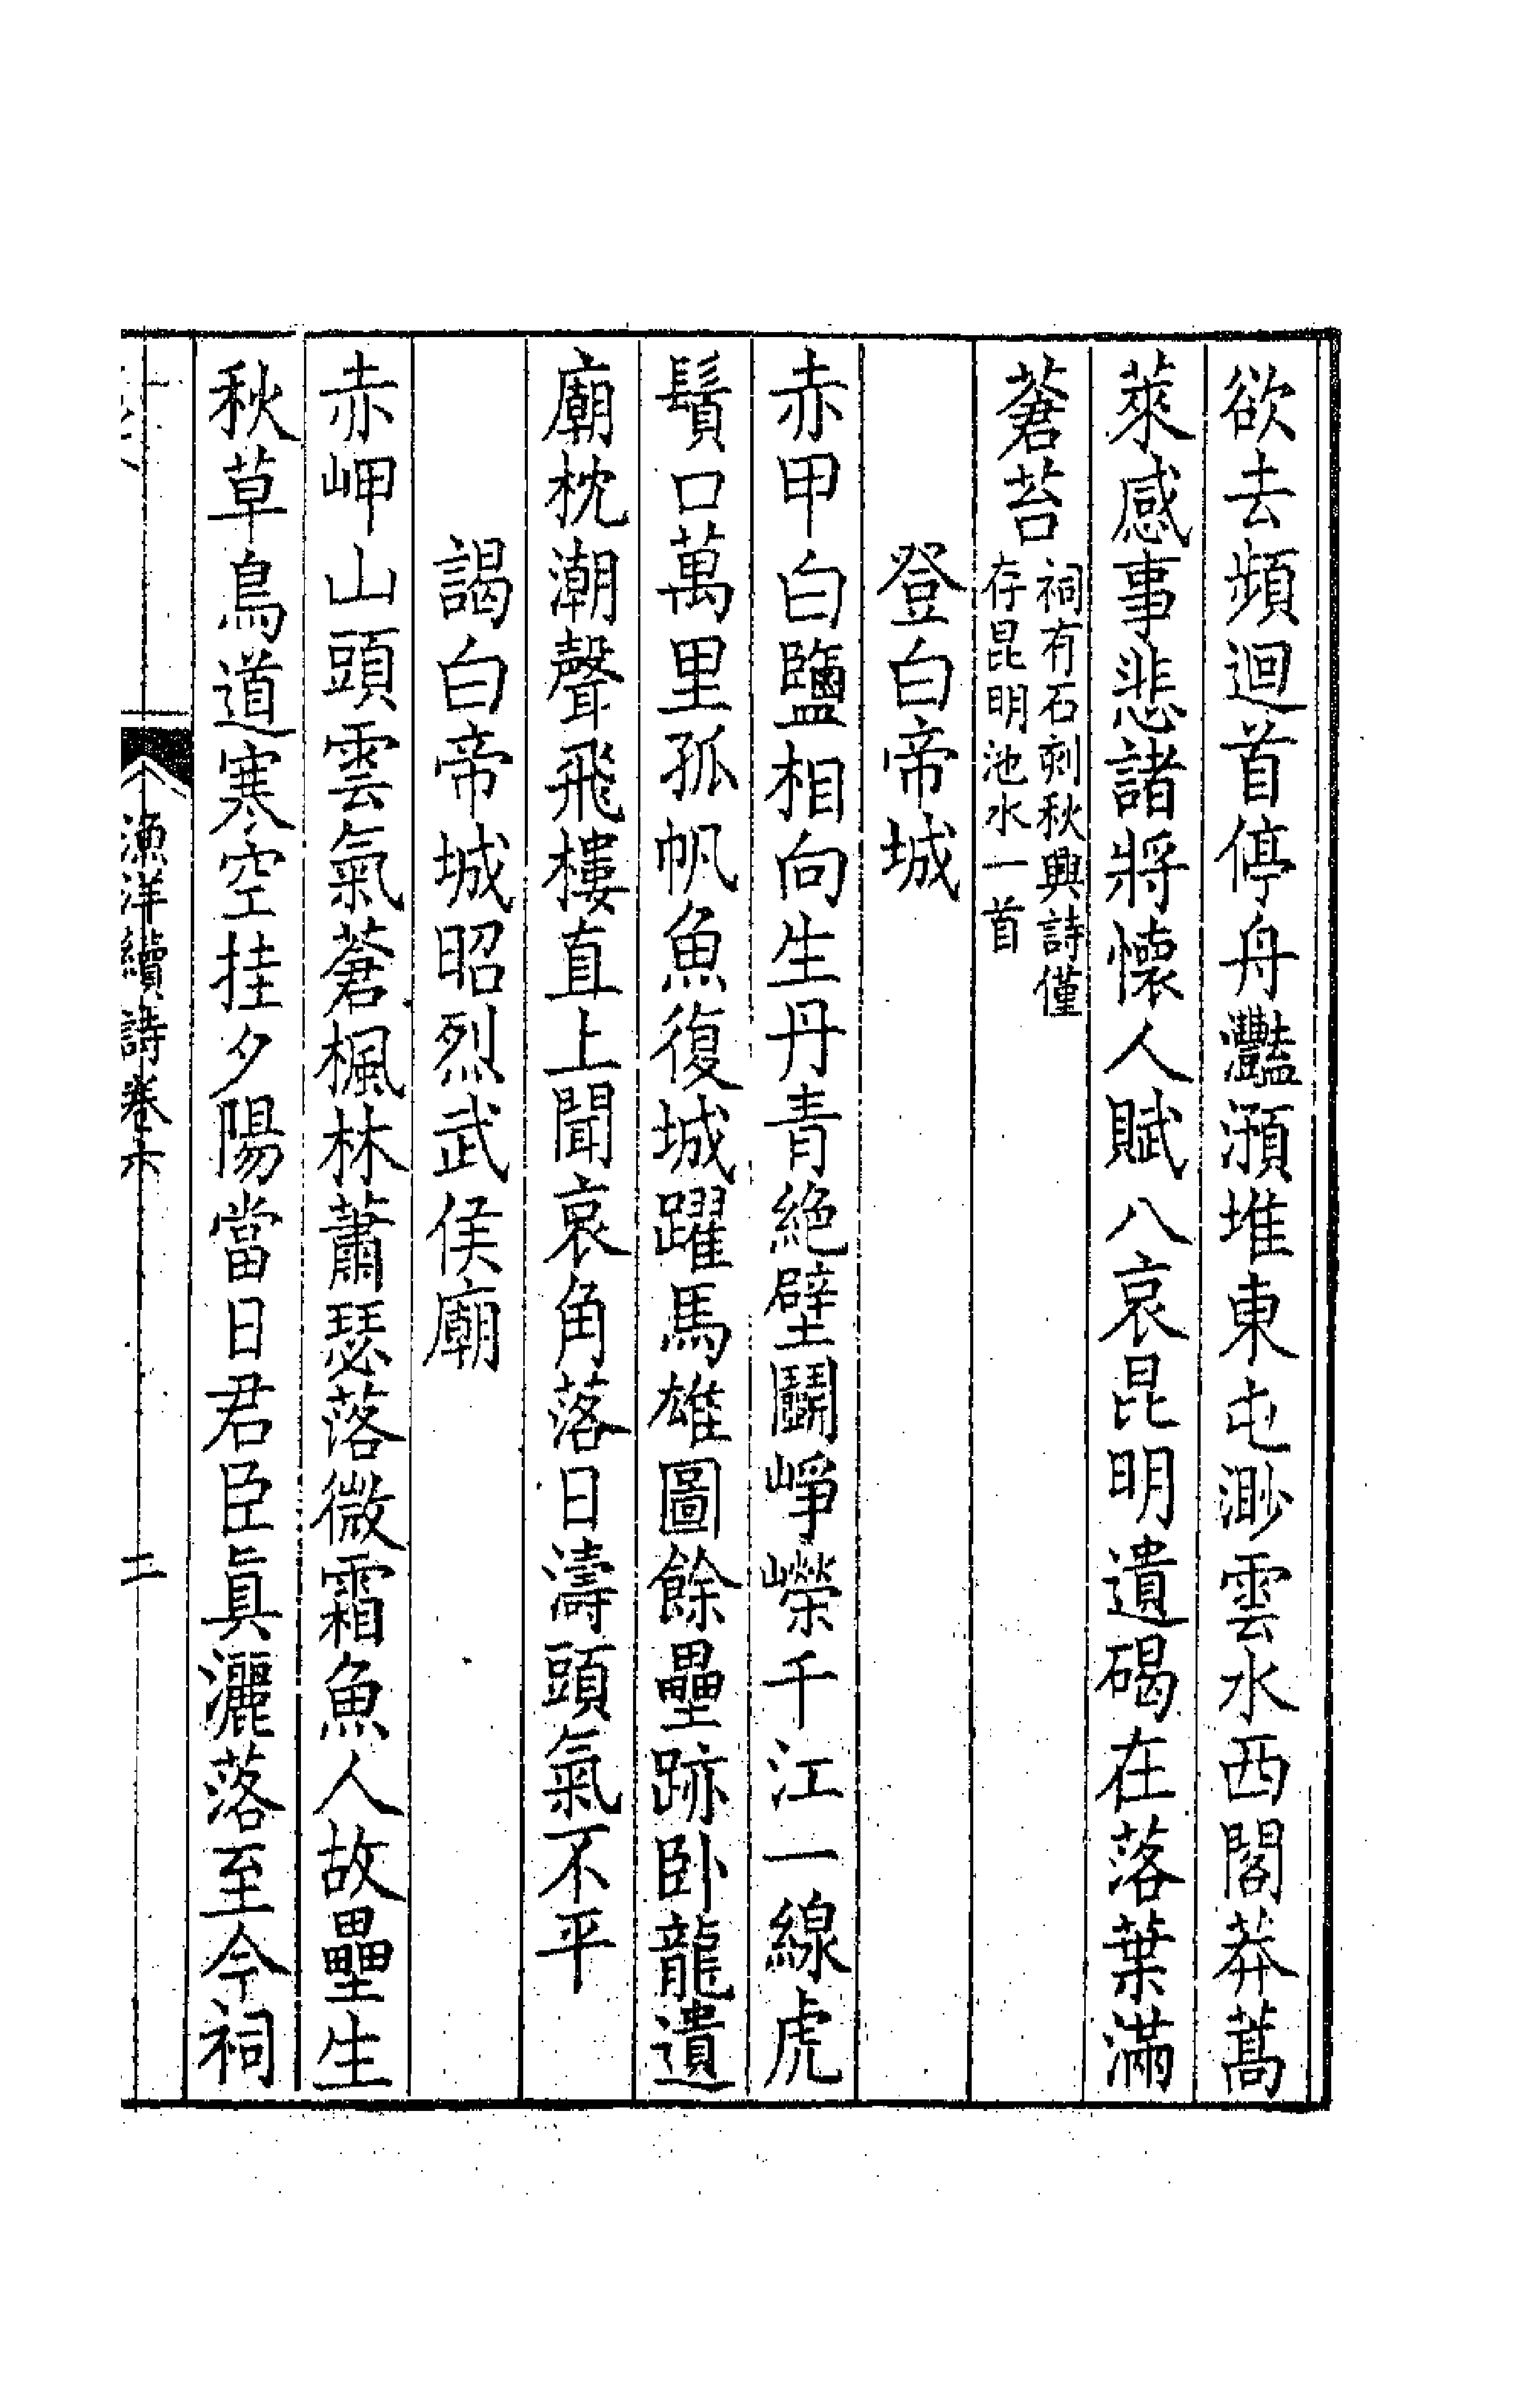 欲去頻迴首停舟灩澦堆東屯渺雲水西閣莽蒿
萊感事悲諸將懷人賦八哀昆明遺碣在落葉滿
蒼苔祠有石刻秋興詩僅
存昆明池水一首
登白帝城
赤甲白鹽相向生丹青絶壁鬭崢嶸千江一線虎
鬚口萬里孤帆魚復城躍馬雄圖餘壘跡卧龍遺
廟枕潮聲飛樓直上聞哀角落日濤頭氣不平
謁白帝城昭烈武侯廟
赤岬山頭雲氣蒼楓林蕭瑟落微霜魚人故壘生
秋草鳥道寒空挂夕陽當日君臣眞灑落至今祠
漁洋續詩卷六
二